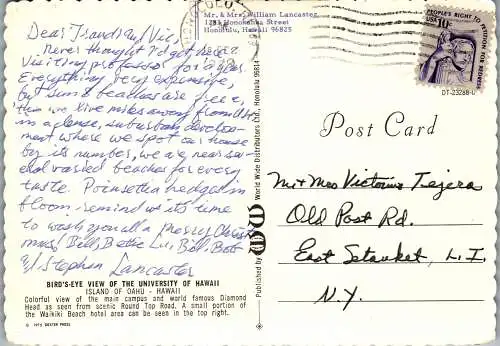 Dear Isaud & Vic,
never thought I'd get here
Visiting professor for a year.
Everything very expensive,
but sun & beaches are free,
tho we live miles away from it
in a dense, suburban develop-
ment where we spot our house
by its number, we are near su-
and varied beaches for every
taste. Poinsettia hedges in
bloom remind us it's time
to wish you all a Merry Christ-
mas! Bill, Bettie Lu, Bill-Bob
& Stephen Lancaster
BIRD'S-EYE VIEW OF THE UNIVERSITY OF HAWAII
ISLAND OF OAHU - HAWAII
Colorful view of the main campus and world famous Diamond
Head as seen from scenic Round Top Road. A small portion of
the Waikiki Beach hotel area can be seen in the top right.
© 1973 DEXTER PRESS
Published by WW World Wide Distributors Ltd., Honolulu 96814
Mr. & Mrs. William Lancaster
Honokahua Street
Honolulu, Hawaii 96825
HONOLULU
PEOPLE'S RIGHT TO PETITION FOR REDRESS
USA 10c
DT-23288-C
Post Card
Mr & Mrs Victorino Tejera
Old Post Rd.
East Setauket, L.I.
N.Y.